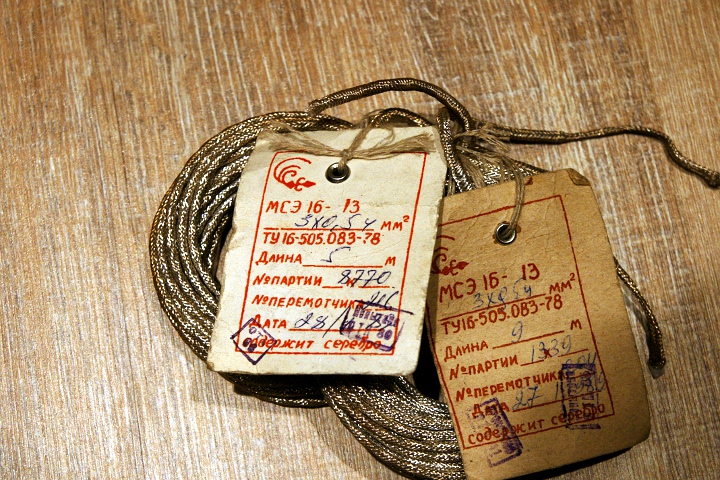 МСЭ 16- 13
3х0,5ч мм²
ТУ16-505.083-78
Длина 5 м
№ партии 8770
№ перемотчика
Дата 28/
содержит серебро
МСЭ 16- 13
3х0,5ч мм²
ТУ16-505.083-78
Длина 9 м
№ партии 1339
№ перемотчика
Дата 27
содержит серебро